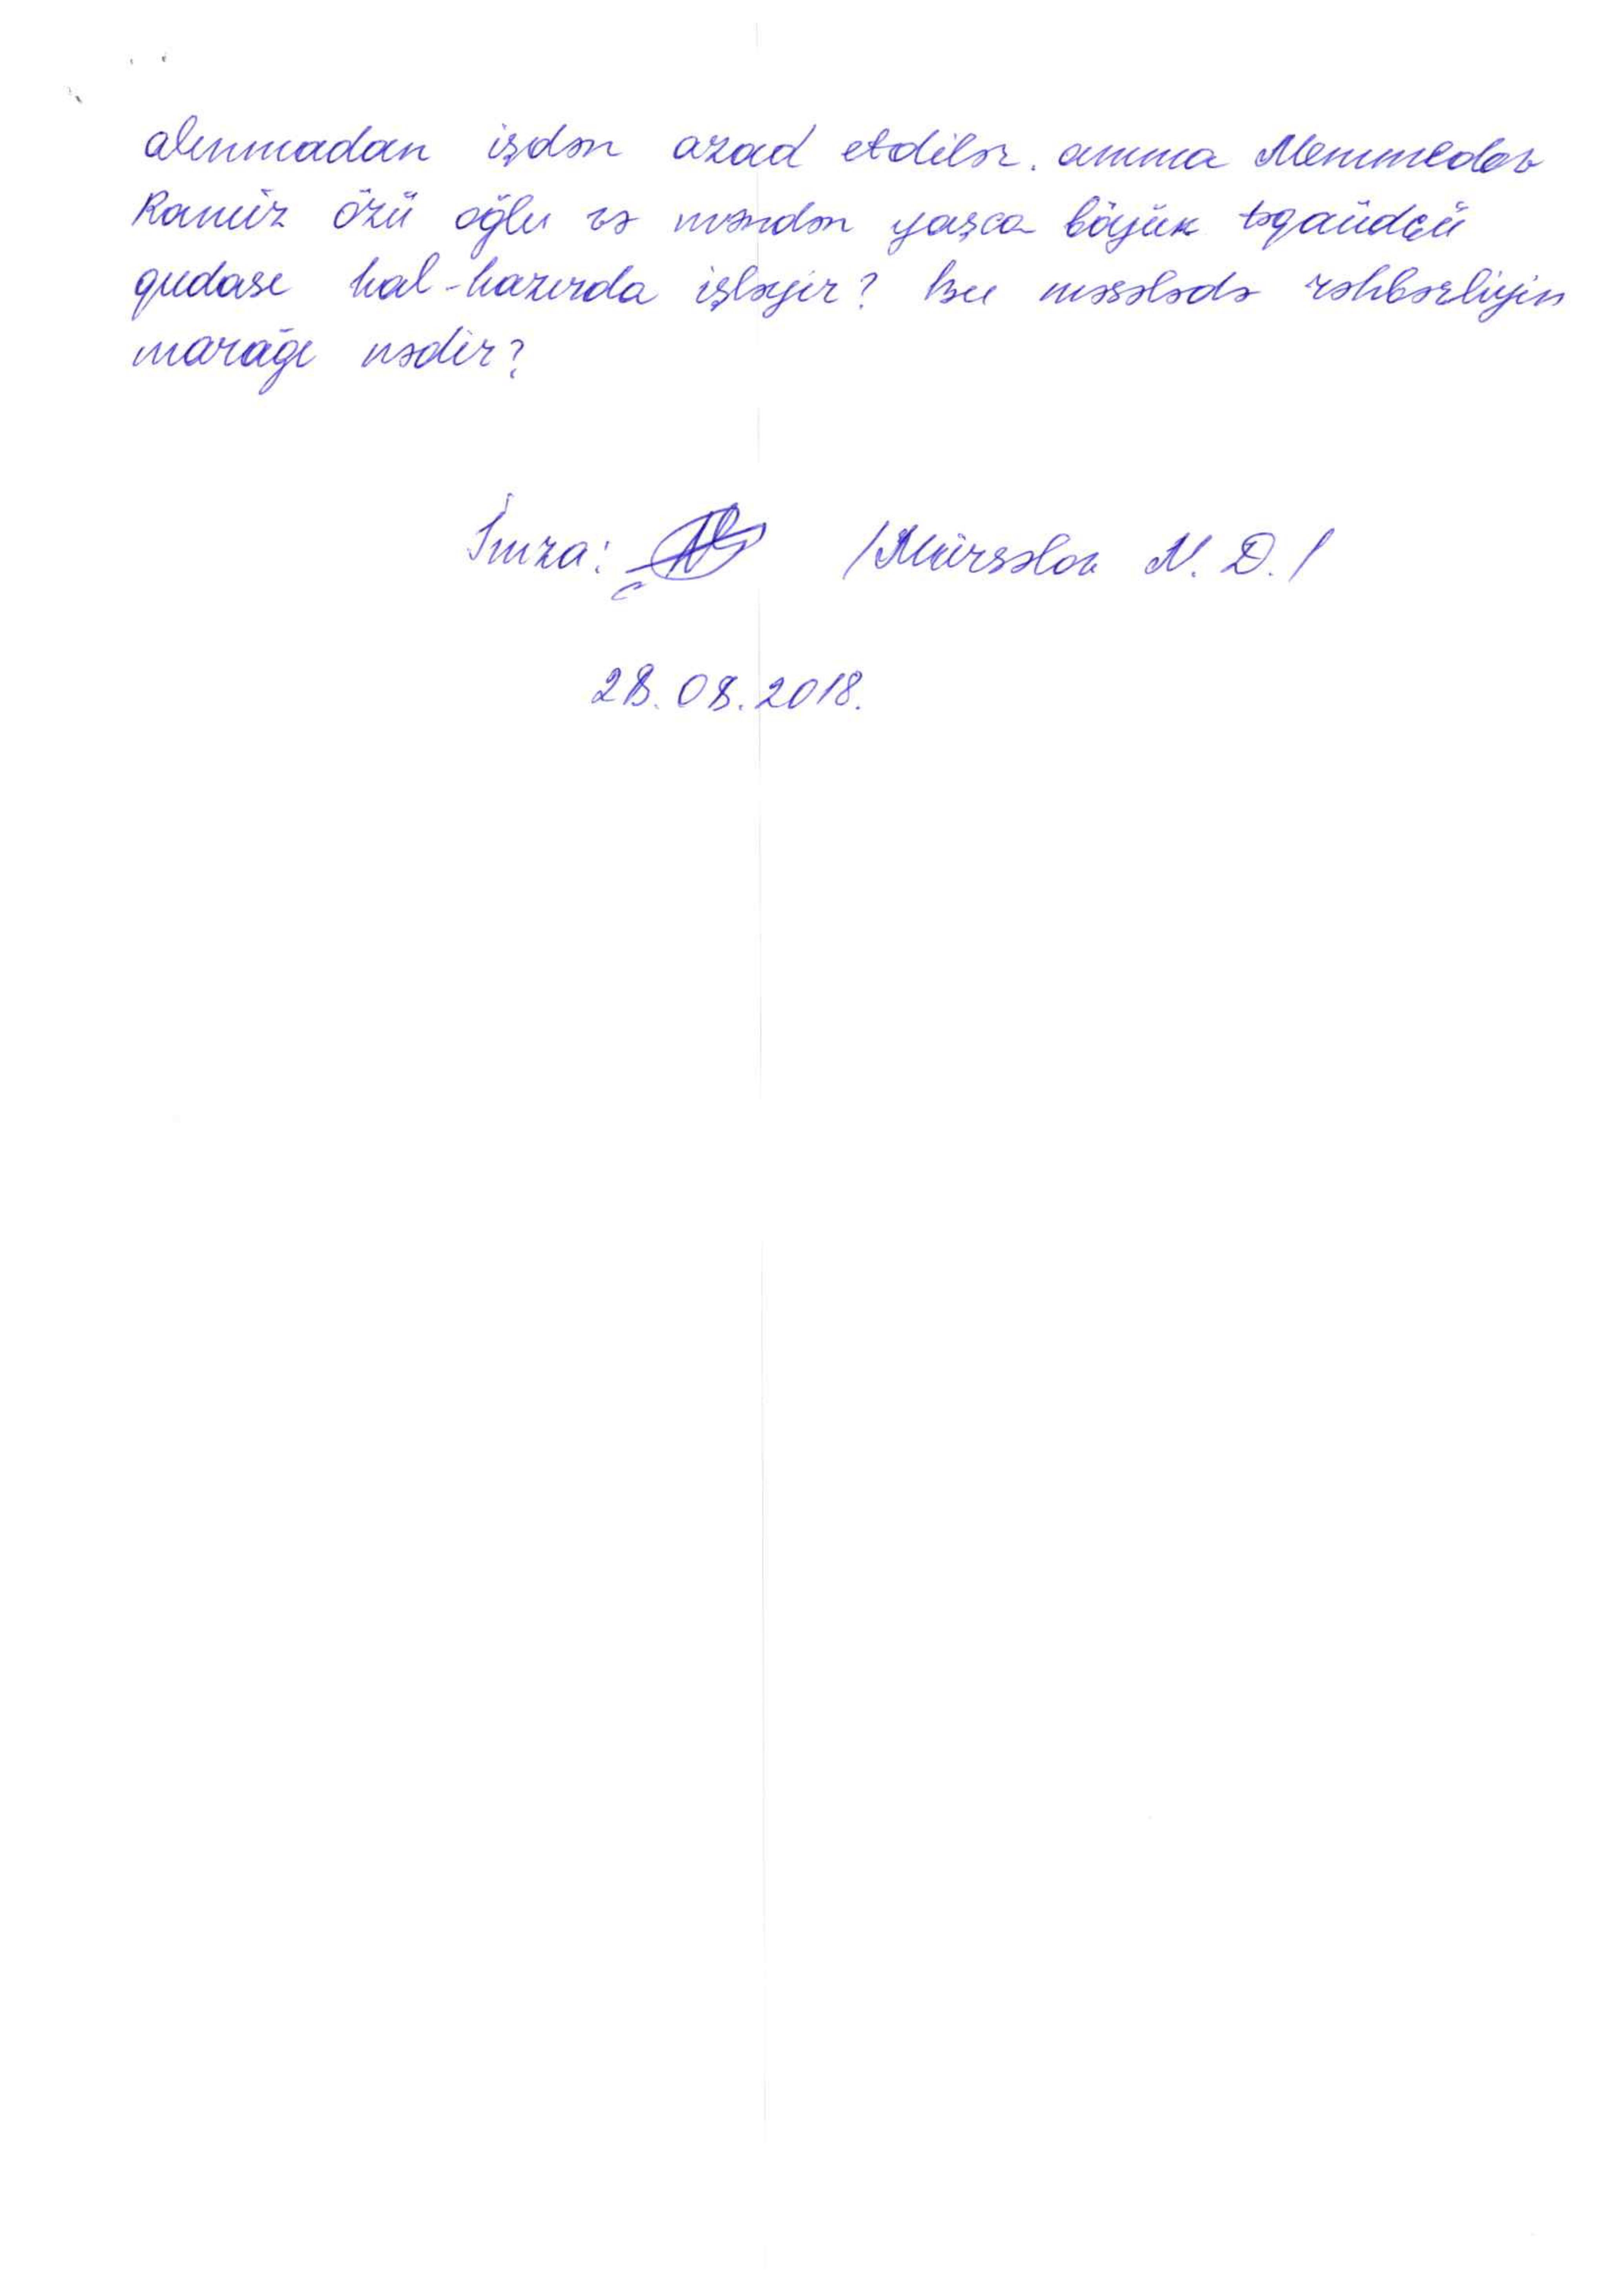 alınmadan işdən azad etdilər. amma Memmedov
Ramiz özü oğlu və məndən yaşca böyük təqaüdçü
qudası hal-hazırda işləyir? bu məsələdə rəhbərliyin
marağı nədir?
İmza: /Mürsəlov N. D./
28.08.2018.